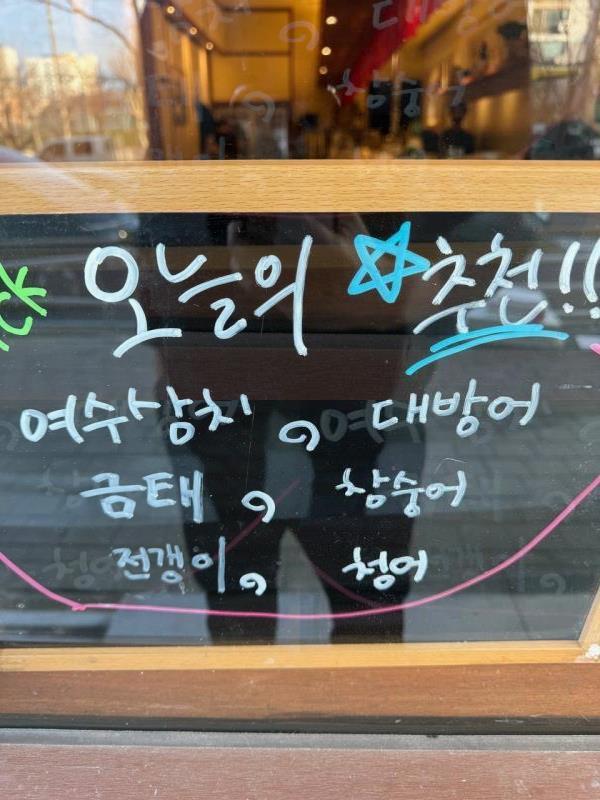 오늘의 ☆추천!!
여수삼치, 대방어
금태, 참숭어
전갱이, 청어